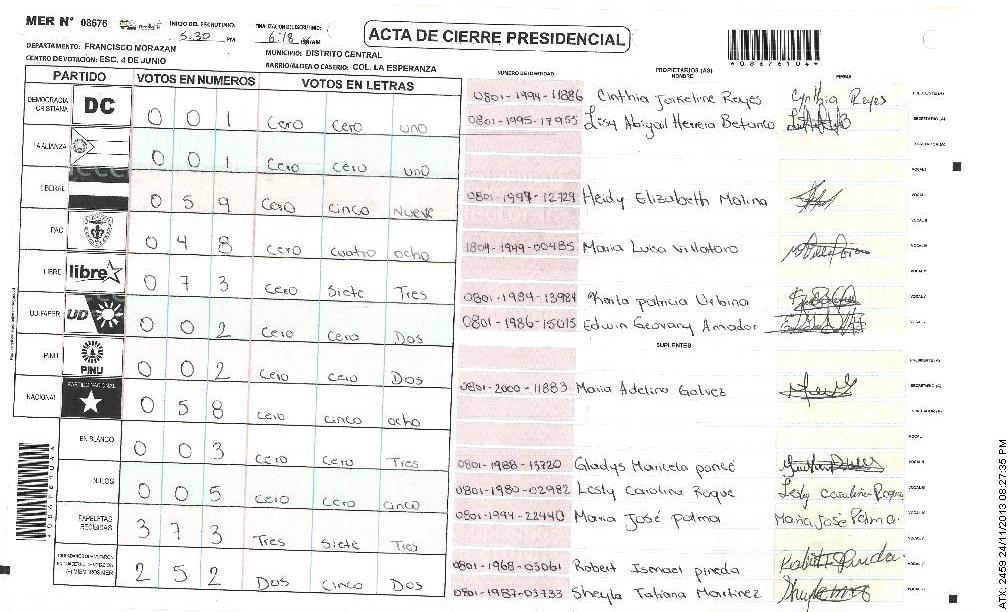 MER N° 08676
INICIO DEL ESCRUTINIO: 5.30 PM
FINALIZACION DEL ESCRUTINIO: 6:18
ACTA DE CIERRE PRESIDENCIAL
DEPARTAMENTO: FRANCISCO MORAZAN
MUNICIPIO: DISTRITO CENTRAL
CENTRO DE VOTACION: ESC. 4 DE JUNIO
BARRIO/ALDEA O CASERIO: COL. LA ESPERANZA
PARTIDO VOTOS EN NUMEROS VOTOS EN LETRAS
DEMOCRACIA CRISTIANA DC 0 0 1 cero cero uno
LA ALIANZA 0 0 1 cero cero uno
LIBERAL 0 5 9 cero cinco Nueve
PAC 0 4 8 cero cuatro ocho
LIBRE libre 0 7 3 cero Siete Tres
UD FAPER UD 0 0 2 cero cero Dos
PINU PINU 0 0 2 cero cero Dos
NACIONAL PARTIDO NACIONAL 0 5 8 cero cinco ocho
EN BLANCO 0 0 3 cero cero Tres
NULOS 0 0 5 cero cero cinco
PAPELETAS RECIBIDAS 3 7 3 Tres Siete Tres
2 5 2 Dos Cinco Dos
NUMERO DE IDENTIDAD PROPIETARIOS (AS) NOMBRE FIRMA
0801-1994-11886 Cinthia Jackeline Reyes Cynthia Reyes PRESIDENTE (A)
0801-1995-17955 Lisy Abigail Herrera Betanco SECRETARIO (A)
ESCRUTADOR (A)
VOCAL I
0801-1997-12729 Heidy Elizabeth Molina
1804-1949-00485 Maria Luisa Villatoro
0801-1984-13984 Karla patricia Urbina
0801-1986-15015 Edwin Geovany Amador
SUPLENTES
PRESIDENTE (A)
0801-2000-11883 Maria Adelina Galvez SECRETARIO (A)
0801-1988-13720 Gladys Maricela ponce
0801-1980-02982 Lesly Carolina Roque Lesly Carolina Roque
0801-1994-22440 Maria José palma Maria Jose Palma.
0801-1968-03061 Robert Ismael pineda
0801-1987-03733 Sheyla Tatiana Martinez
ATX: 2459 24/11/2013 08:27:35 PM